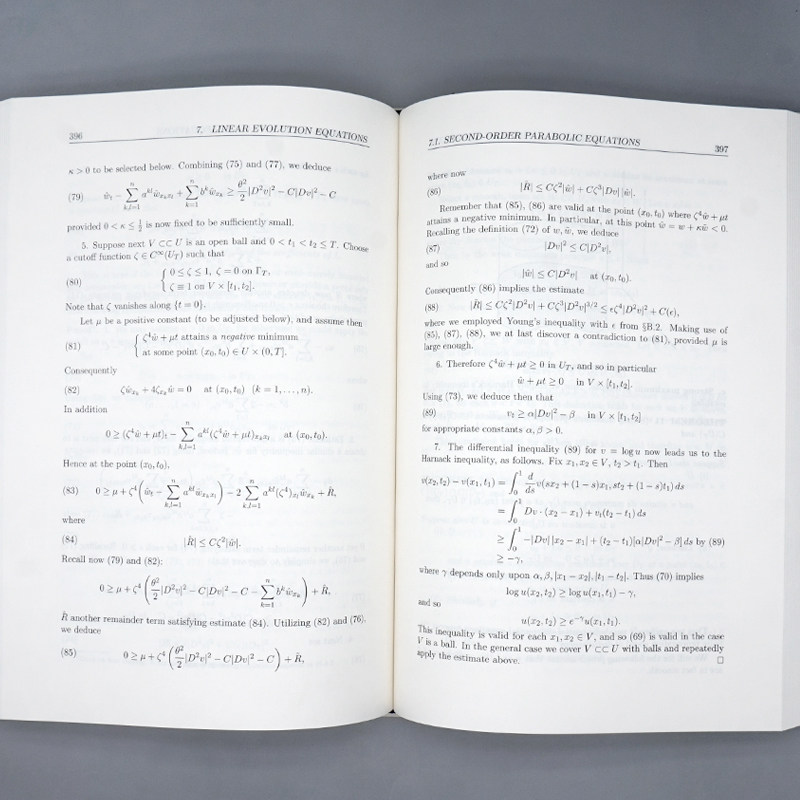 396
7. LINEAR EVOLUTION EQUATIONS
κ > 0 to be selected below. Combining (75) and (77), we deduce
(79) ŵ_t − ∑_{k,l=1}^n a^{kl} ŵ_{x_k x_l} + ∑_{k=1}^n b^k ŵ_{x_k} ≥ θ²/2 |D²v|² − C|Dv|² − C
provided 0 < κ ≤ ½ is now fixed to be sufficiently small.
5. Suppose next V ⊂⊂ U is an open ball and 0 < t₁ < t₂ ≤ T. Choose
a cutoff function ζ ∈ C^∞(U_T) such that
(80) { 0 ≤ ζ ≤ 1, ζ = 0 on Γ_T,
ζ ≡ 1 on V × [t₁, t₂].
Note that ζ vanishes along {t = 0}.
Let μ be a positive constant (to be adjusted below), and assume then
(81) { ζ⁴ŵ + μt attains a negative minimum
at some point (x₀, t₀) ∈ U × (0, T].
Consequently
(82) ζŵ_{x_k} + 4ζ_{x_k}ŵ = 0 at (x₀, t₀) (k = 1, . . . , n).
In addition
0 ≥ (ζ⁴ŵ + μt)_t − ∑_{k,l=1}^n a^{kl}(ζ⁴ŵ + μt)_{x_k x_l} at (x₀, t₀).
Hence at the point (x₀, t₀),
(83) 0 ≥ μ + ζ⁴ ( ŵ_t − ∑_{k,l=1}^n a^{kl} ŵ_{x_k x_l} ) − 2 ∑_{k,l=1}^n a^{kl}(ζ⁴)_{x_l} ŵ_{x_k} + R̂,
where
(84) |R̂| ≤ Cζ²|ŵ|.
Recall now (79) and (82):
0 ≥ μ + ζ⁴ ( θ²/2 |D²v|² − C|Dv|² − C − ∑_{k=1}^n b^k ŵ_{x_k} ) + R̂,
R̂ another remainder term satisfying estimate (84). Utilizing (82) and (76),
we deduce
(85) 0 ≥ μ + ζ⁴ ( θ²/2 |D²v|² − C|Dv|² − C ) + R̂,
7.1. SECOND-ORDER PARABOLIC EQUATIONS
397
where now
(86) |R̂| ≤ Cζ²|ŵ| + Cζ³|Dv||ŵ|.
Remember that (85), (86) are valid at the point (x₀, t₀) where ζ⁴ŵ + μt
attains a negative minimum. In particular, at this point ŵ = w + κw̃ < 0.
Recalling the definition (72) of w, w̃, we deduce
(87) |Dv|² ≤ C|D²v|,
and so
|ŵ| ≤ C|D²v| at (x₀, t₀).
Consequently (86) implies the estimate
(88) |R̂| ≤ Cζ²|D²v| + Cζ³|D²v|^{3/2} ≤ εζ⁴|D²v|² + C(ε),
where we employed Young's inequality with ε from §B.2. Making use of
(85), (87), (88), we at last discover a contradiction to (81), provided μ is
large enough.
6. Therefore ζ⁴ŵ + μt ≥ 0 in U_T, and so in particular
ŵ + μt ≥ 0 in V × [t₁, t₂].
Using (73), we deduce then that
(89) v_t ≥ α|Dv|² − β in V × [t₁, t₂]
for appropriate constants α, β > 0.
7. The differential inequality (89) for v = log u now leads us to the
Harnack inequality, as follows. Fix x₁, x₂ ∈ V, t₂ > t₁. Then
v(x₂, t₂) − v(x₁, t₁) = ∫₀¹ d/ds v(sx₂ + (1 − s)x₁, st₂ + (1 − s)t₁) ds
= ∫₀¹ Dv · (x₂ − x₁) + v_t(t₂ − t₁) ds
≥ ∫₀¹ −|Dv||x₂ − x₁| + (t₂ − t₁)[α|Dv|² − β] ds by (89)
≥ −γ,
where γ depends only upon α, β, |x₁ − x₂|, |t₁ − t₂|. Thus (70) implies
log u(x₂, t₂) ≥ log u(x₁, t₁) − γ,
and so
u(x₂, t₂) ≥ e^{−γ}u(x₁, t₁).
This inequality is valid for each x₁, x₂ ∈ V, and so (69) is valid in the case
V is a ball. In the general case we cover V ⊂⊂ U with balls and repeatedly
apply the estimate above. □